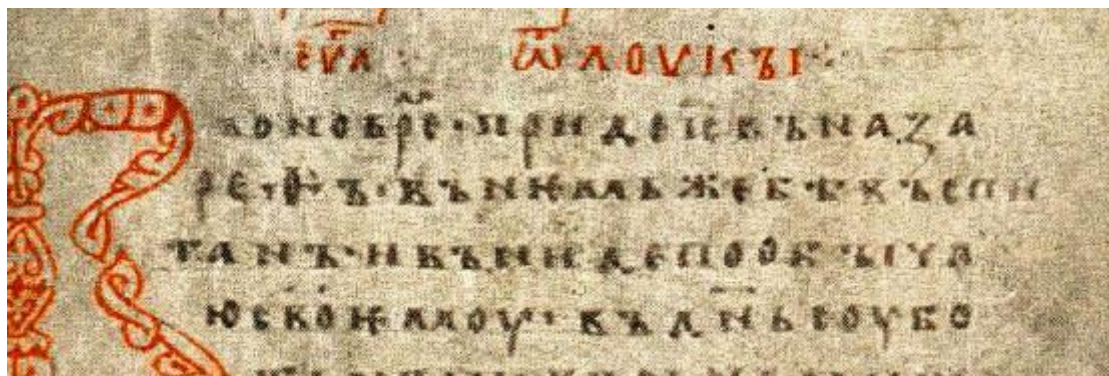 еѵⷢ҇л ѿ лоѵкъі
воновреⷨ·придеіс҃въназа
реѳъ·вънѥмьжебѣвъспи
танъ·ивънидепообъіча
юсвоѥмоу·въдн҃ьсоубо